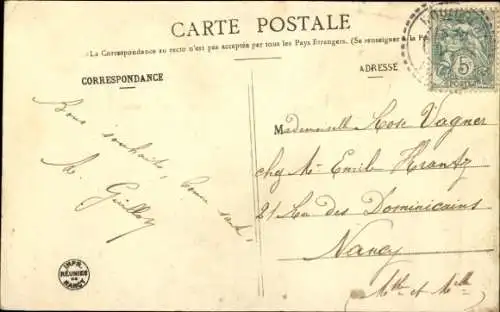 CARTE POSTALE
La Correspondance au recto n'est pas acceptée par tous les Pays Étrangers. (Se renseigner
CORRESPONDANCE
ADRESSE
Bons souhaits, bonne santé,
M. Guillot
Mademoiselle Rose Vagner
chez Mr. Emile Krantz
21 Rue des Dominicains
Nancy
Mthe et Mlle
5c
IMPR.
RÉUNIES
DE
NANCY